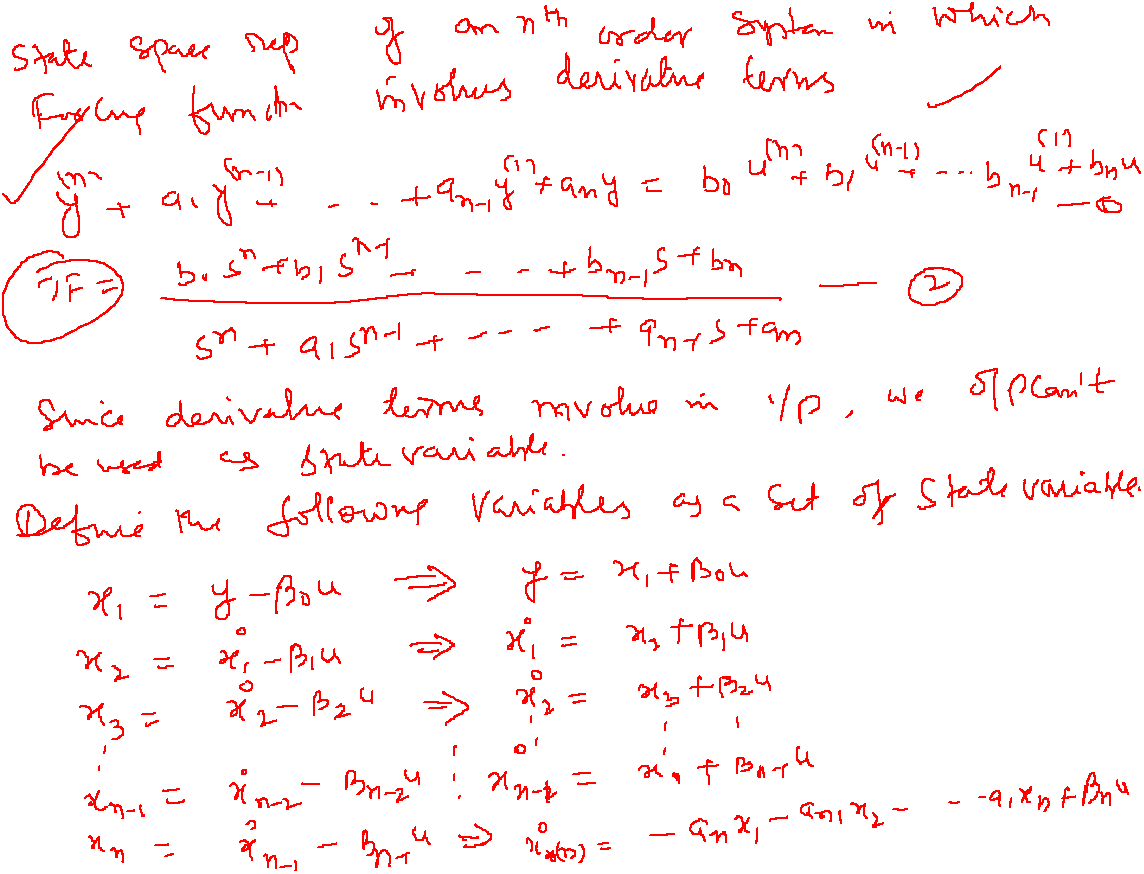 State space rep of an nth order system in which
Forcing functn involves derivative terms
y^(n) + a₁ y^(n-1) + - - - + a_{n-1} y^(1) + a_n y = b₀ u^(n) + b₁ u^(n-1) + - - - b_{n-1} u^(1) + b_n u —①
TF = (b₀ sⁿ + b₁ s^{n-1} + - - - + b_{n-1} s + b_n) / (sⁿ + a₁ s^{n-1} + - - - - + a_{n-1} s + a_n) — ②
Since derivative terms involve in i/p, we o/p can't
be used as state variable.
Define the following variables as a set of state variable.
x₁ = y - β₀u ⇒ y = x₁ + β₀u
x₂ = ẋ₁ - β₁u ⇒ ẋ₁ = x₂ + β₁u
x₃ = ẋ₂ - β₂u ⇒ ẋ₂ = x₃ + β₂u
x_{n-1} = ẋ_{n-2} - β_{n-2}u ⋮ ẋ_{n-1} = x_n + β_{n-1}u
x_n = ẋ_{n-1} - β_{n-1}u ⇒ = -a_n x₁ - a_{n-1} x₂ - - - a₁x_n + β_n u